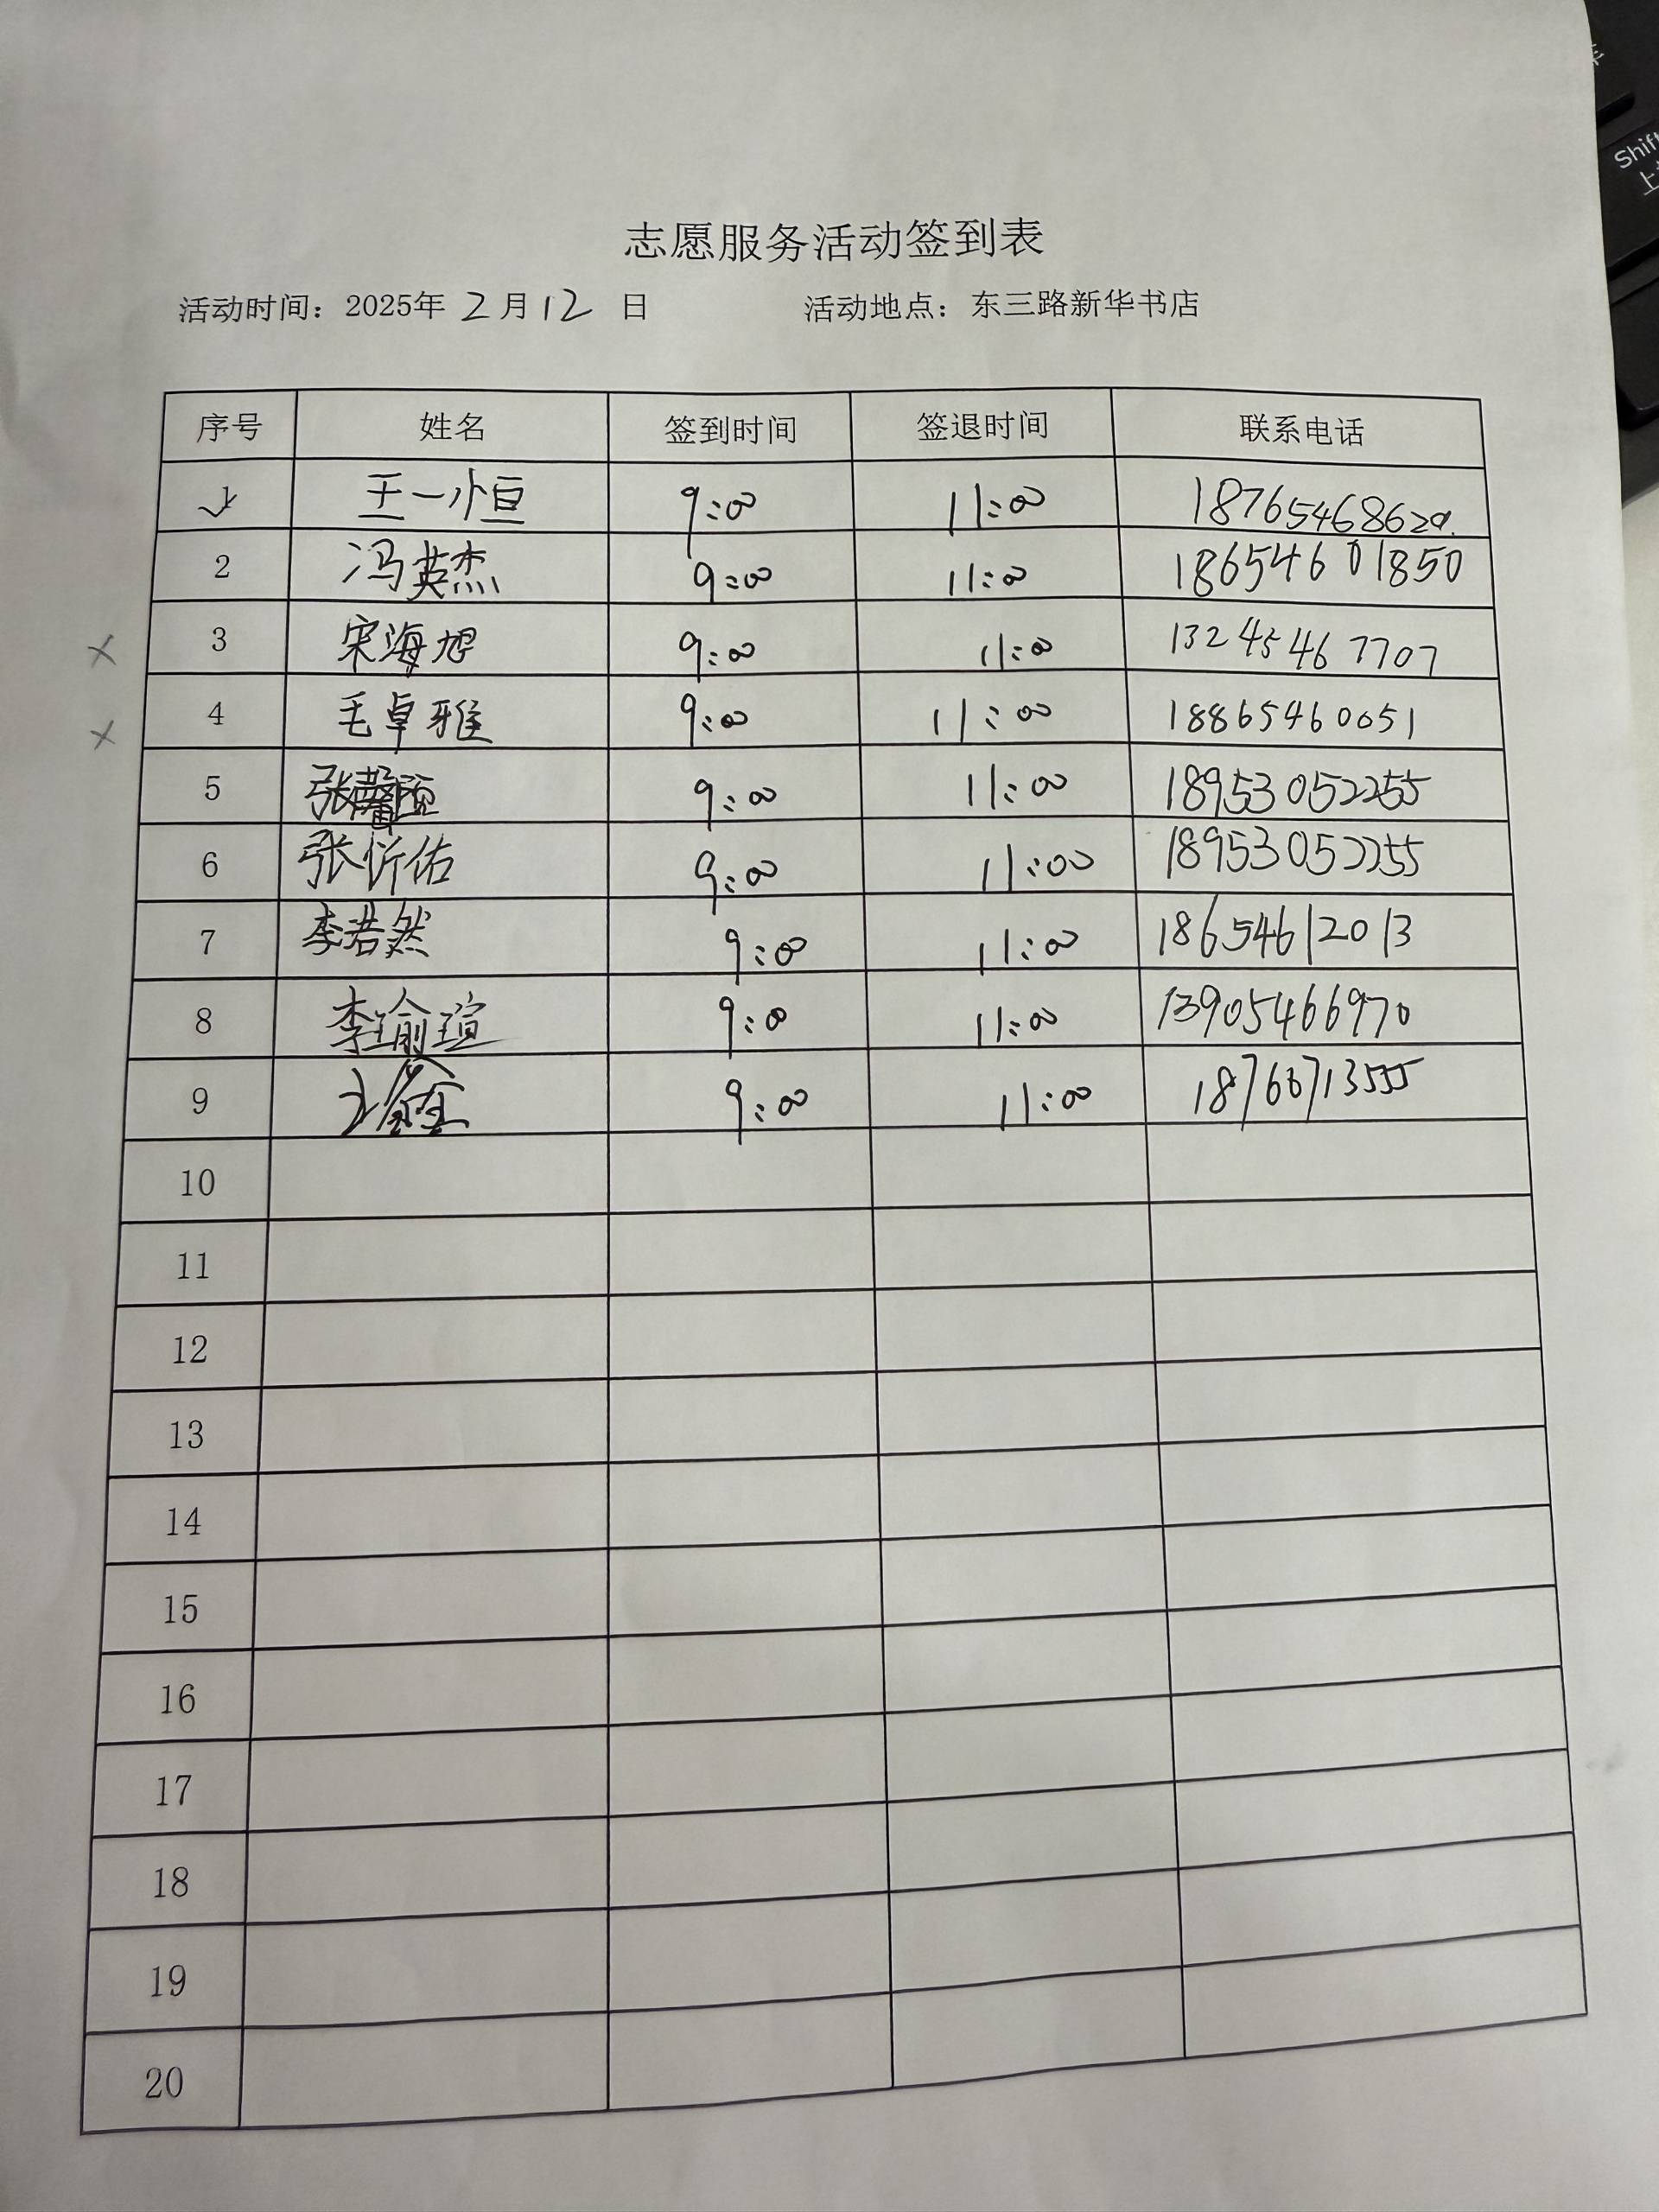 志愿服务活动签到表
活动时间：2025年 2月12 日 活动地点：东三路新华书店
序号 姓名 签到时间 签退时间 联系电话
1 王一恒 9:00 11:00 18765468629
2 冯英杰 9:00 11:00 18654601850
3 宋海旭 9:00 11:00 13245467707
4 毛卓雅 9:00 11:00 18865460051
5 张馨 9:00 11:00 18953052255
6 张忻佑 9:00 11:00 18953052255
7 李若然 9:00 11:00 18654612013
8 李瑜瑄 9:00 11:00 13905466970
9 9:00 11:00 18766713555
10
11
12
13
14
15
16
17
18
19
20
Shift
上